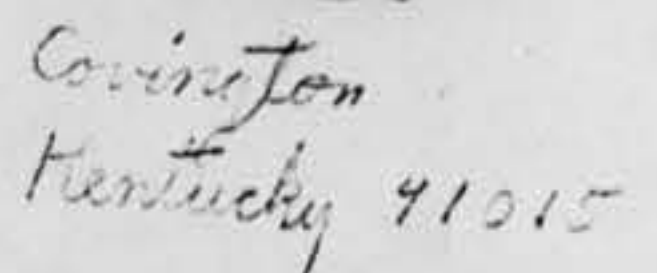 Covington
Kentucky 41015